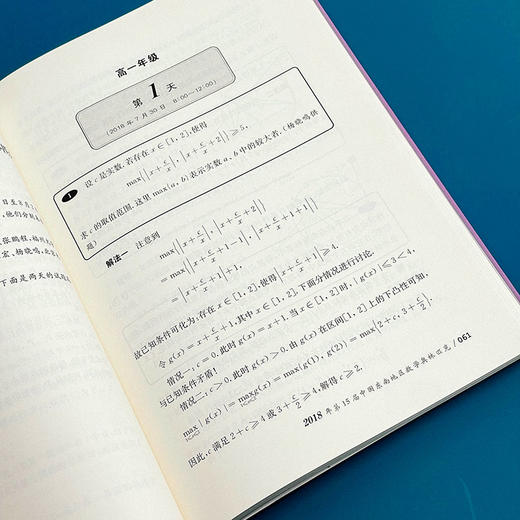 高一年级
第1天
(2018年7月30日 8:00—12:00)
1 设c是实数.若存在x∈[1,2],使得
max{|x+c/x|, |x+c/x+2|}≥5,
求c的取值范围.这里max{a,b}表示实数a、b中的较大者.(杨晓鸣供
题)
解法一 注意到
max{|x+c/x|, |x+c/x+2|}
=max{|x+c/x+1-1|, |x+c/x+1+1|}
=|x+c/x+1|+1,
故已知条件可化为:存在x∈[1,2],使得|x+c/x+1|≥4.
令g(x)=x+c/x+1,其中x∈[1,2].下面分情况进行讨论.
情况一:c=0.此时g(x)=x+1.当x∈[1,2]时,|g(x)|≤3<4,
与已知条件矛盾!
情况二:c>0.此时g(x)>0.由g(x)在区间[1,2]上的下凸性可知,
max|g(x)|=max g(x)=max{g(1),g(2)}=max{2+c,3+c/2}.
因此,c满足2+c≥4或3+c/2≥4,解得c≥2.
2018年第15届中国东南地区数学奥林匹克 061
张鹏程
宏、杨晓鸣
下面是两天的试